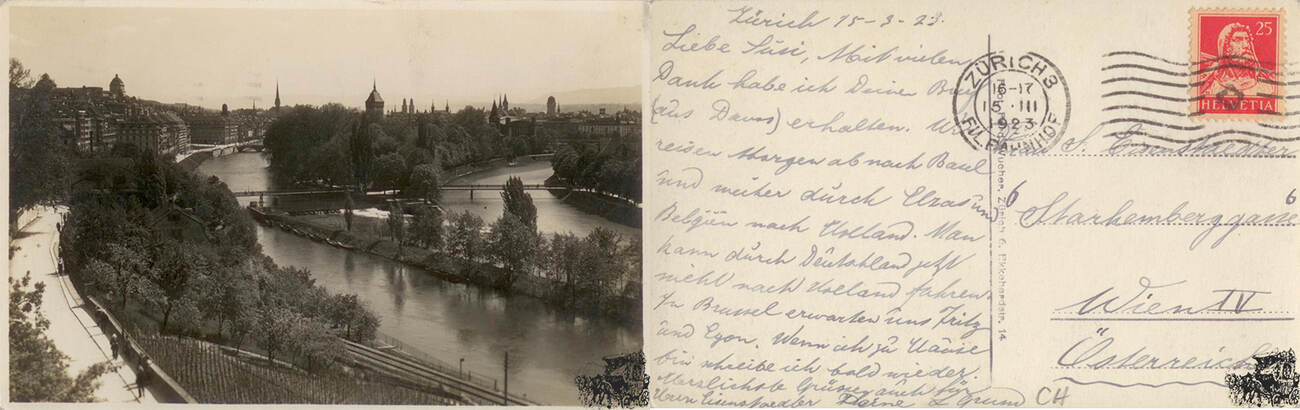 Zürich 15-3-23.
Liebe Susi, Mit vielen
Dank habe ich Deine
(aus Davos) erhalten. Wir
reisen Morgen ab nach Basel
und weiter durch Elzas und
Belgien nach Holland. Man
kann durch Deutschland jetzt
nicht nach Holland fahren.
In Brussel erwarten uns Fritz
und Egon. Wenn ich zu Hause
bin schreibe ich bald wieder.
Herzlichste Grüsse auch für
Eisenstaedter
ZÜRICH 3
16-17
15 III
1923
BAHNHOF
25
HELVETIA
S.
6 Starhemberggasse 6
Wien IV
Österreich
Zürich 6, Ekkehardstr. 14
CH